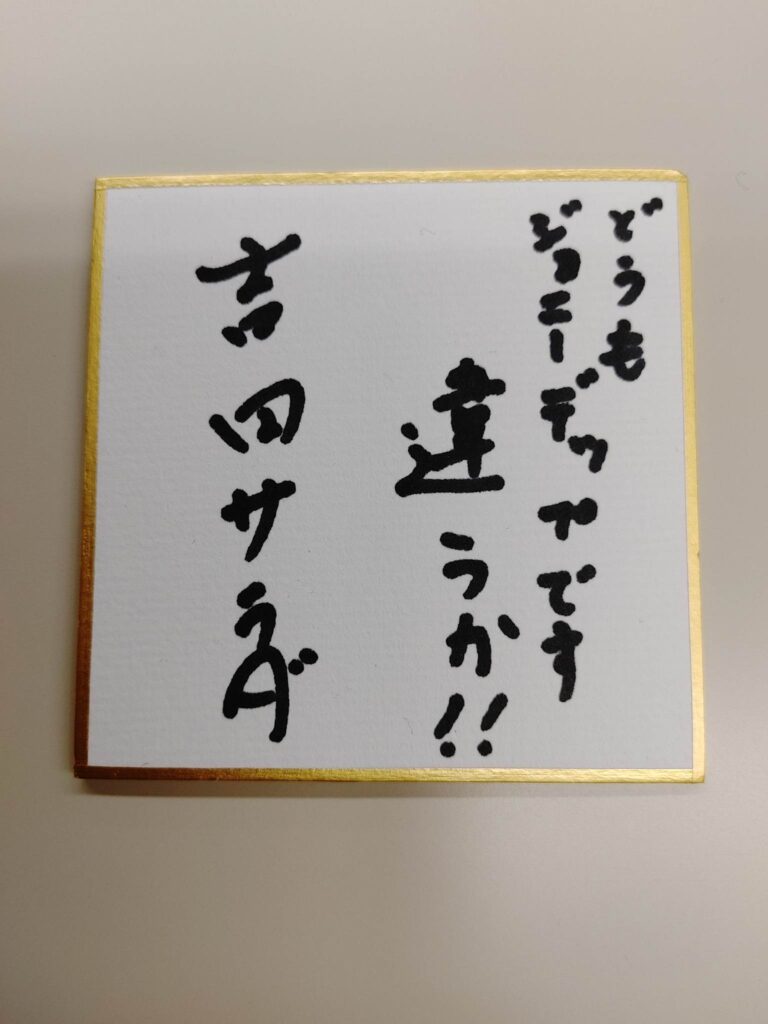 どうも
ジョニーデップです
違うか!!
吉田サラダ